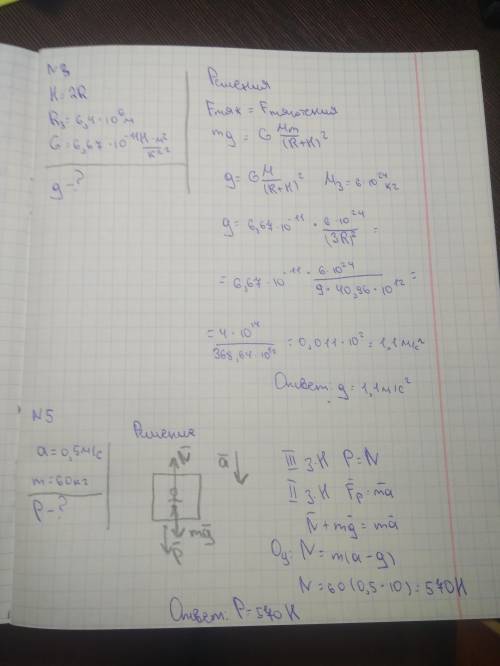 N3
H = 2R
R₃ = 6,4·10⁶м
G = 6,67·10⁻¹¹ Н·м²/кг²
g - ?
Решения
Fтяж = Fтяготения
mg = G Mm/(R+H)²
g = G M/(R+H)² M₃ = 6·10²⁴ кг
g = 6,67·10⁻¹¹ · 6·10²⁴/(3R)² =
= 6,67·10⁻¹¹ · 6·10²⁴/9·40,96·10¹² =
= 4·10¹⁴/368,64·10¹² = 0,011·10² = 1,1 м/с²
Ответ: g = 1,1 м/с²
N5
a = 0,5 м/с
m = 60 кг
P - ?
Решения
N̄
ā
mḡ
P̄
III з.Н P = N
II з.Н F̄р = mā
N̄ + mḡ = mā
Oy: N = m(a - g)
N = 60 (0,5 - 10) = 570 Н
Ответ: P = 570 Н